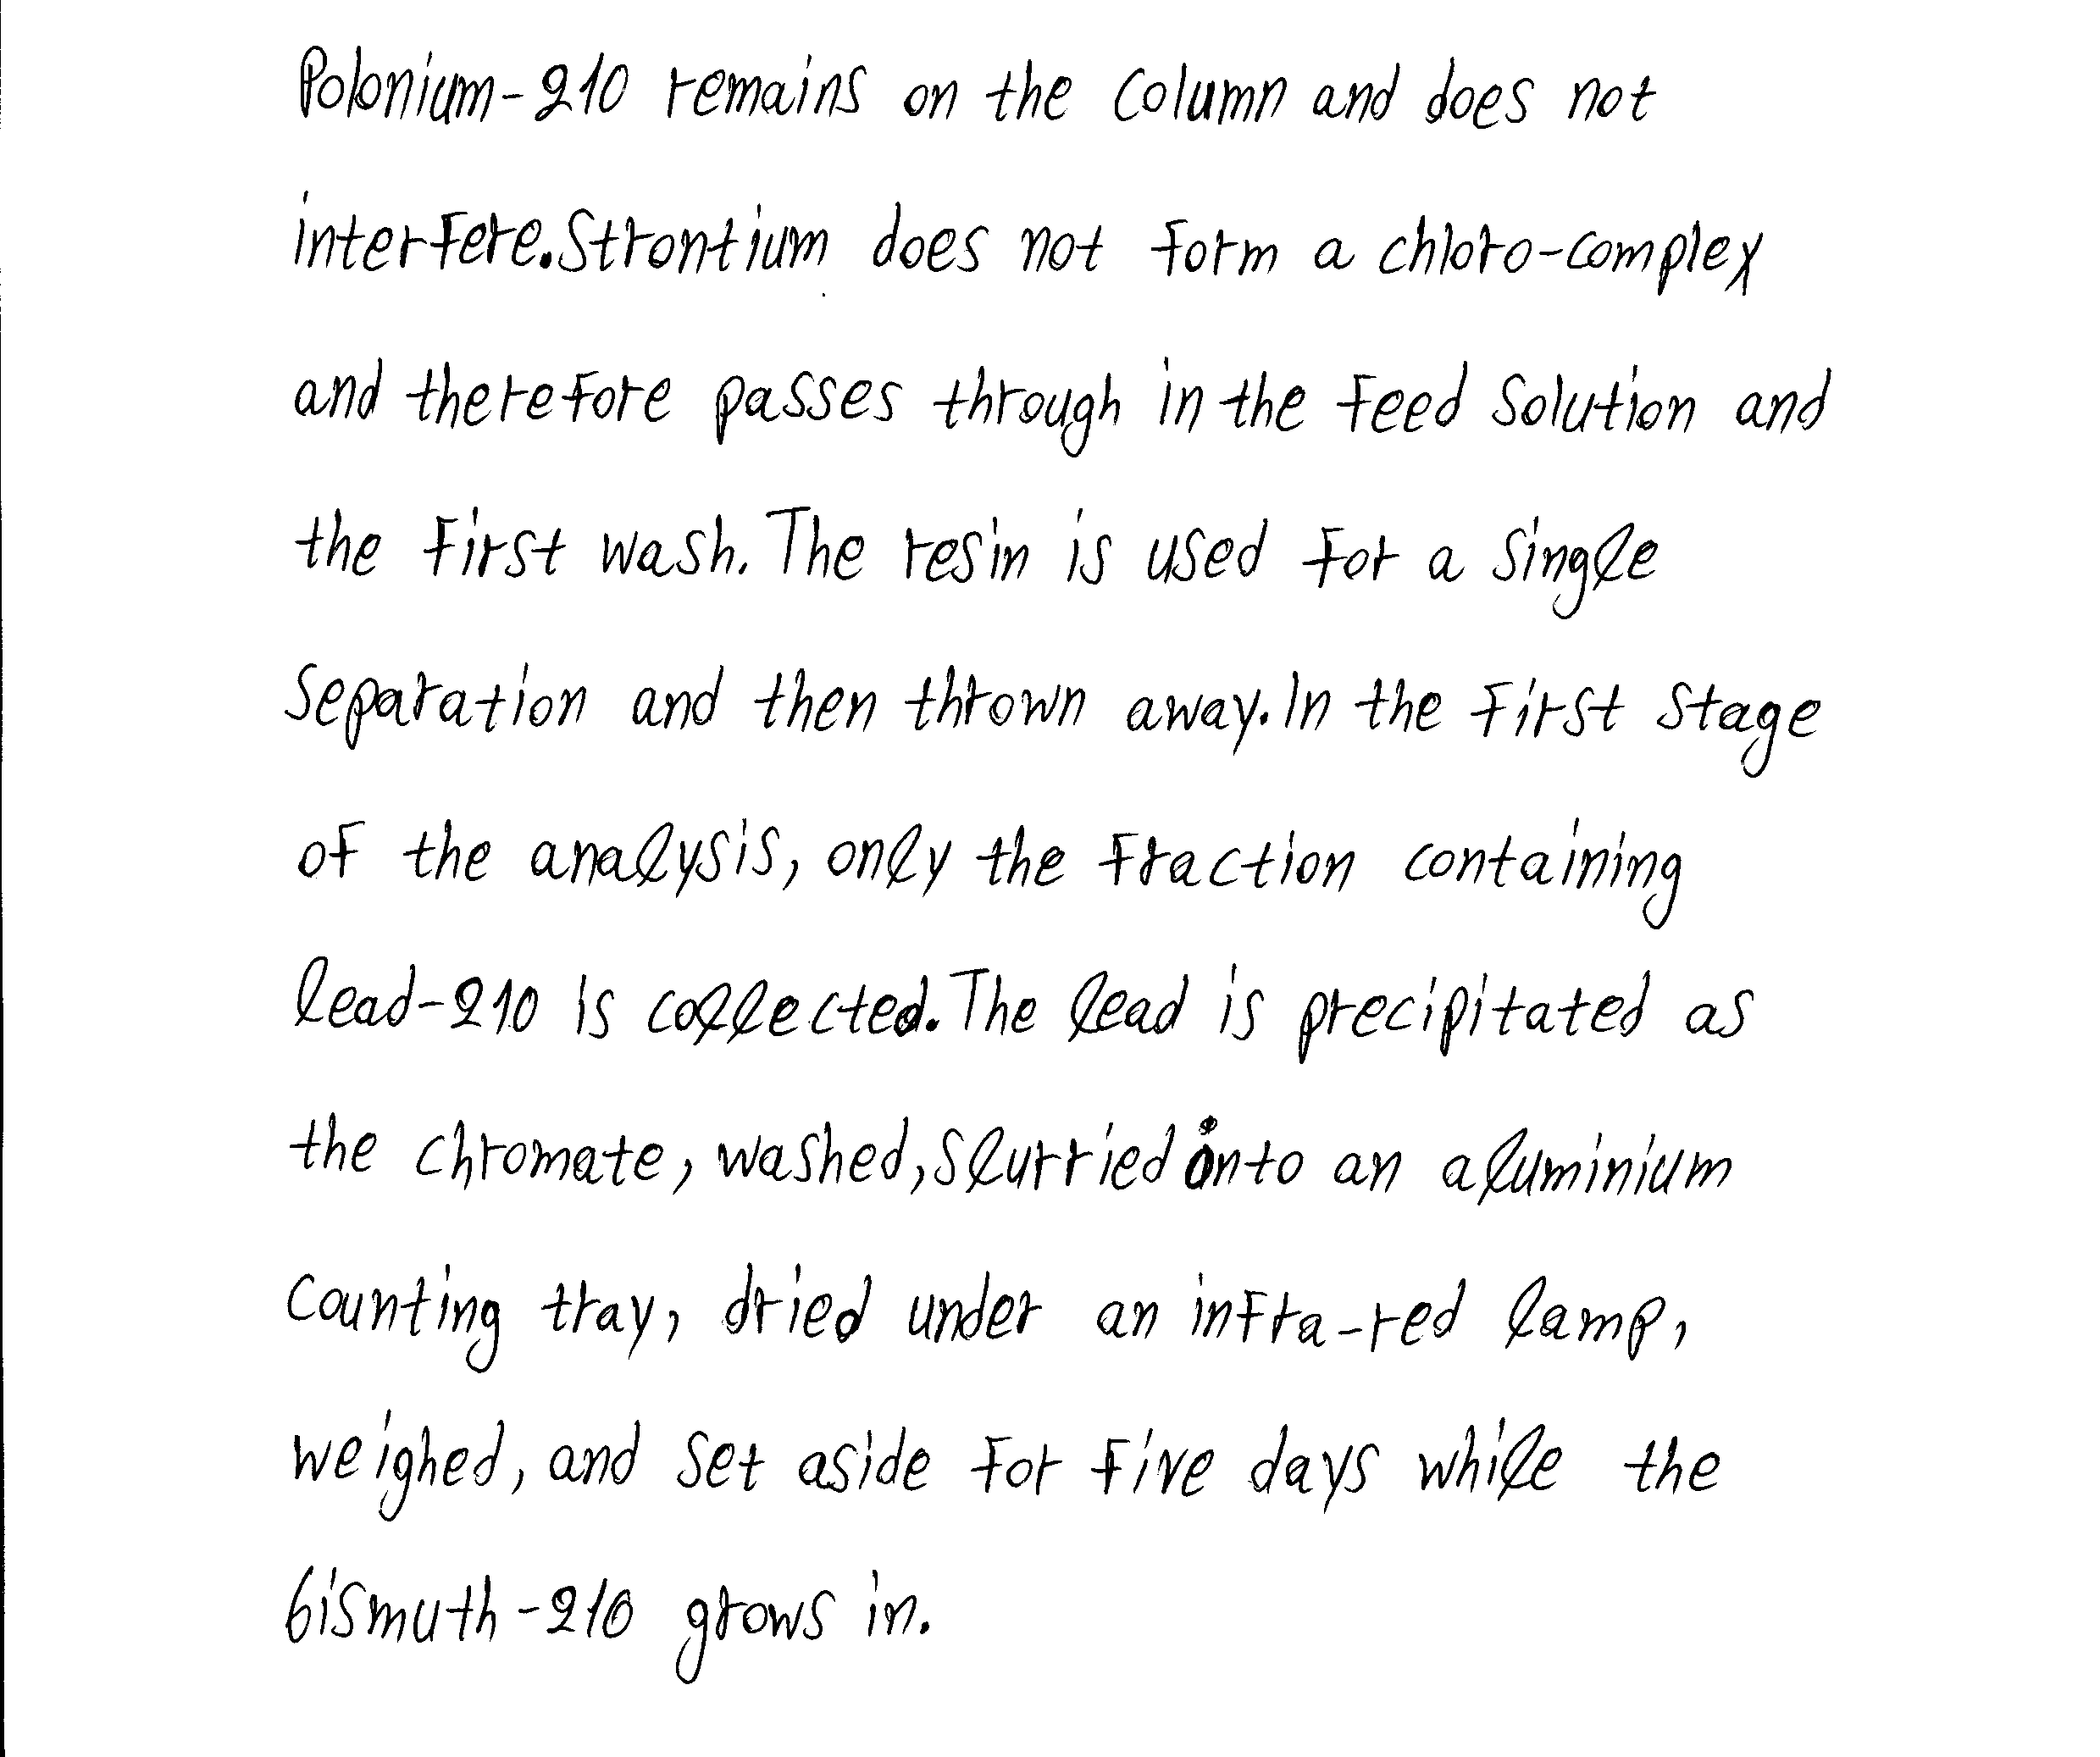 Polonium-210 remains on the column and does not
interfere. Strontium does not form a chloro-complex
and therefore passes through in the feed solution and
the first wash. The resin is used for a single
separation and then thrown away. In the first stage
of the analysis, only the fraction containing
lead-210 is collected. The lead is precipitated as
the chromate, washed, slurried into an aluminium
counting tray, dried under an infra-red lamp,
weighed, and set aside for five days while the
bismuth-210 grows in.